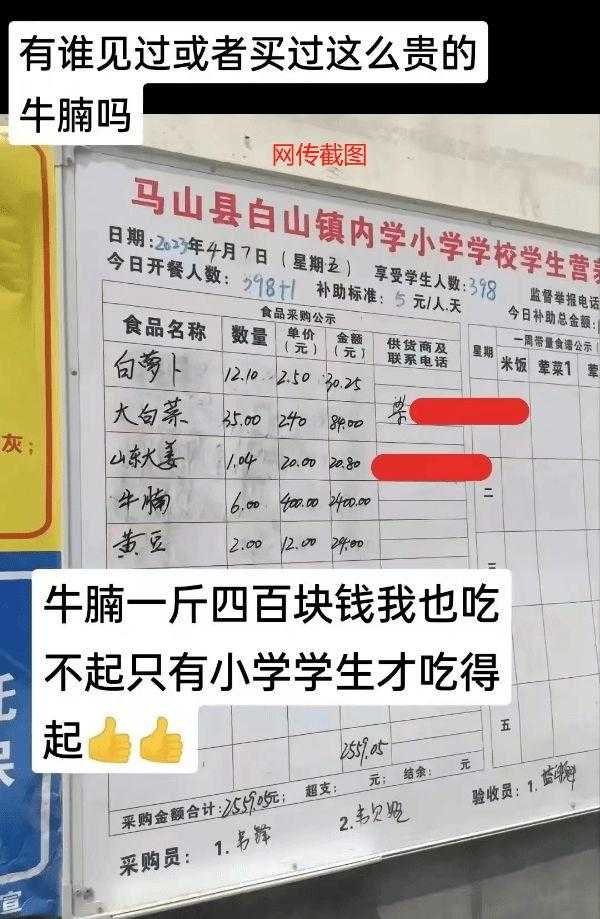 有谁见过或者买过这么贵的
牛腩吗
网传截图
马山县白山镇内学小学学校学生营养
日期:2023年4月7日(星期五) 享受学生人数:398
监督举报电话
今日开餐人数:398+1 补助标准:5元/人.天
今日补助总金额:
食品采购公示
食品名称 数量 单价(元) 金额(元) 供货商及联系电话
星期 一周带量食谱公示(
米饭 荤菜1 荤
白萝卜 12.10 2.50 30.25
大白菜 35.00 2.40 84.00
山东大姜 1.04 20.00 20.80
二
牛腩 6.00 400.00 2400.00
黄豆 2.00 12.00 24.00
灰;
牛腩一斤四百块钱我也吃
不起只有小学学生才吃得
起👍👍
五
2559.05
采购金额合计:2559.05元; 超支: 元; 结余: 元
采购员: 1. 2. 验收员: 1.
宣